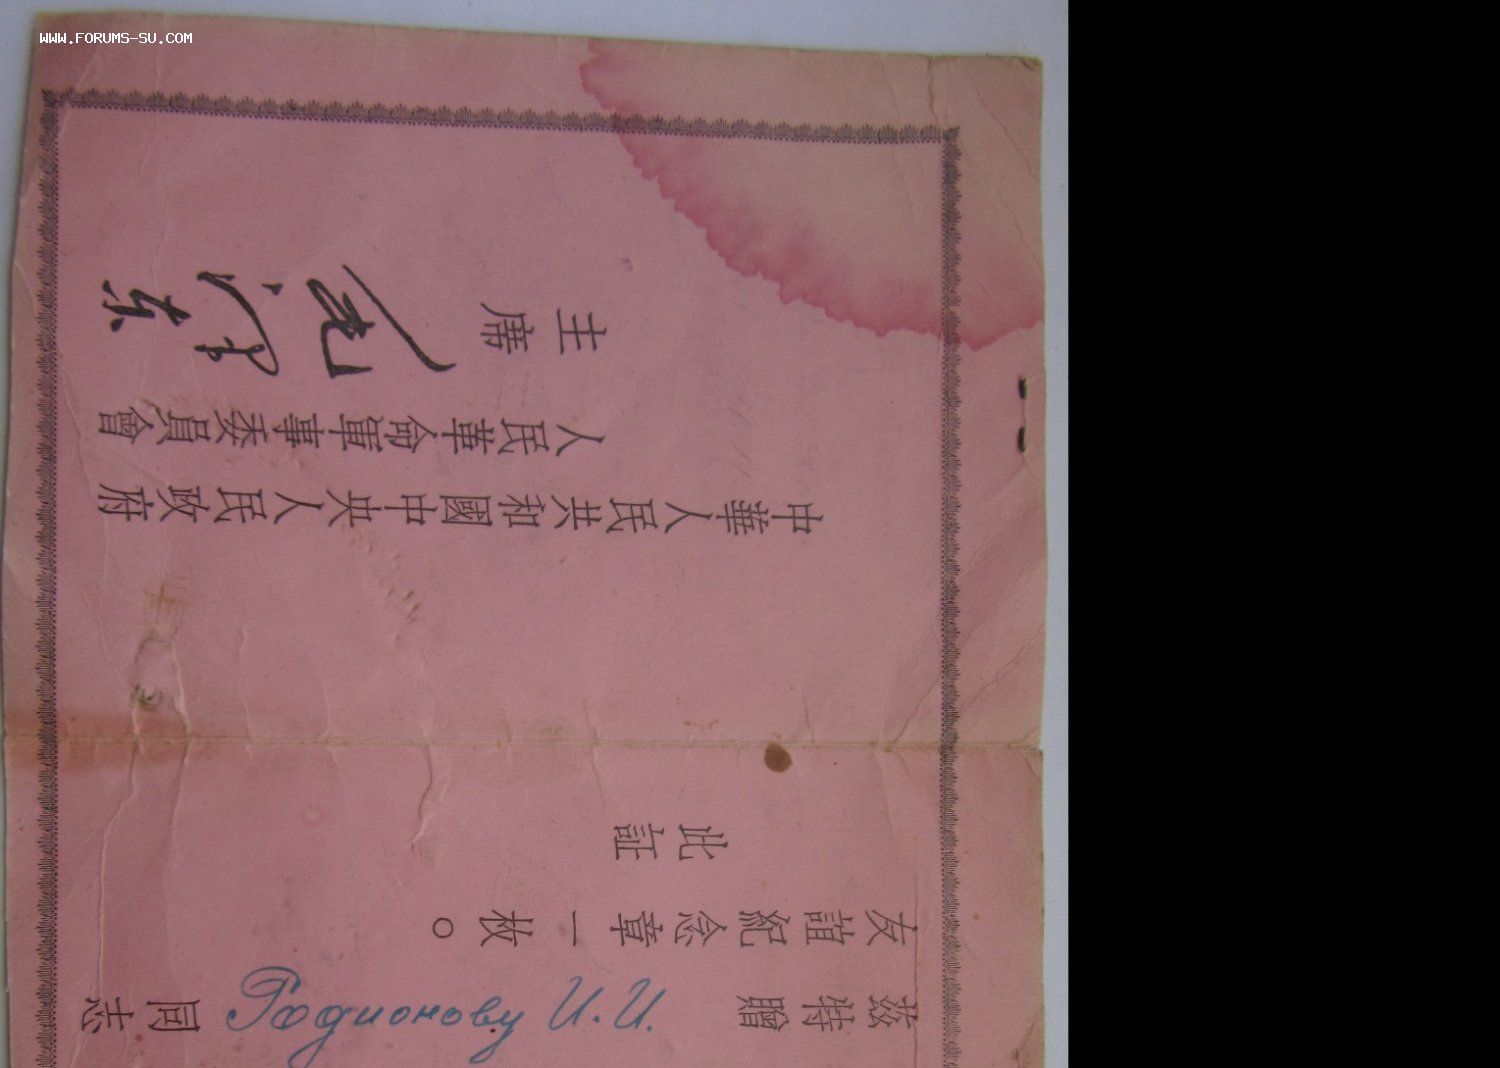 WWW.FORUMS-SU.COM
茲特贈 Родионову И.И. 同志
友誼紀念章一枚。
此証
中華人民共和國中央人民政府
人民革命軍事委員會
主席 毛澤东